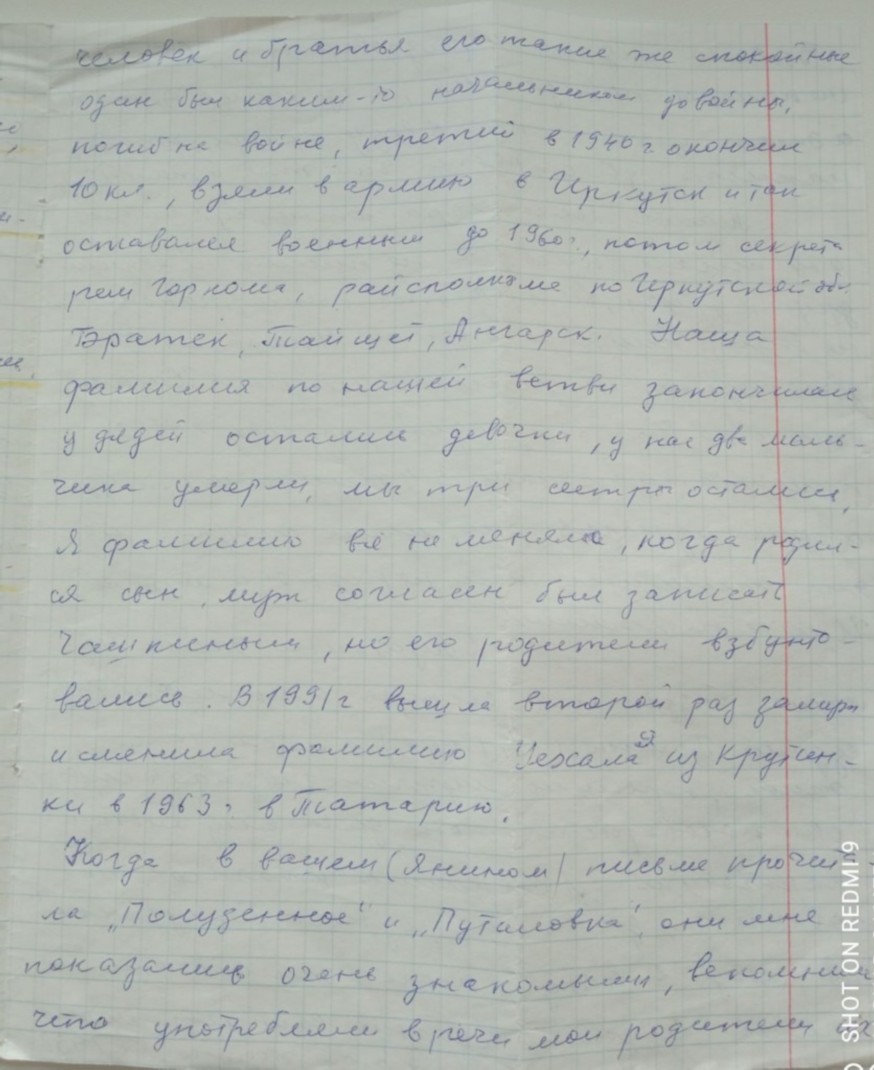 человек и братья его такие же спокойные
один был каким-то начальником до войны,
погиб на войне, третий в 1940 г. окончил
10 кл., взяли в армию в Иркутск и так
оставался военным до 1960 г., потом секрета
рем Горкома, райсполкоме по Иркутской обл
Братск, Тайшет, Ангарск. Наша
фамилия по нашей ветви закончилась
у дядей остались девочки, у нас два маль-
чика умерли, мы три сестры остались,
Я фамилию всё не меняла, когда родил-
ся сын, муж согласен был записать
но его родители взбунто-
вались. В 1991 г вышла второй раз замуж
и сменила фамилию Уехала я из Крутин-
ки в 1963 г. в Татарию.
Когда в вашем (Янином) письме прочит
ла „Полуденное" и „Путиловка", они мне
показались очень знакомыми, вспомнила
что употребляли в речи мои родители
SHOT ON REDMI 9